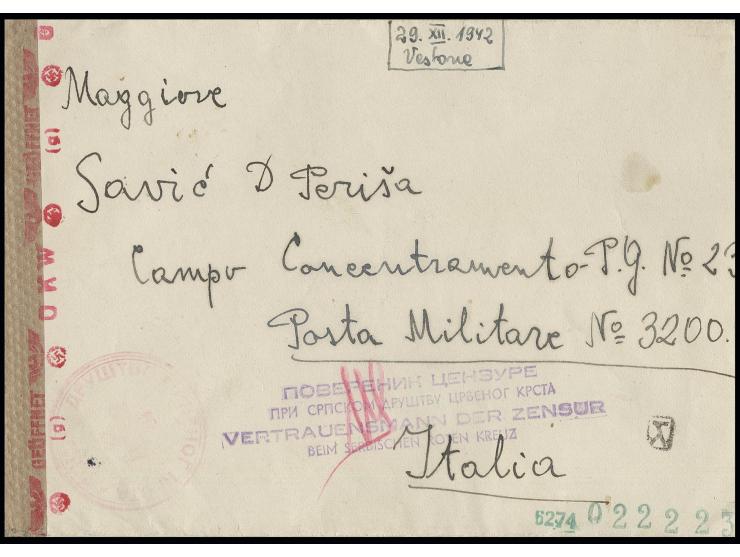 29. XII. 1942
Vestone
Maggiore
Savić D Periša
Campo Concentramento-P.G. № 23
Posta Militare № 3200.
ПОВЕРЕНИК ЦЕНЗУРЕ
ПРИ СРПСКОМ ДРУШТВУ ЦРВЕНОГ КРСТА
VERTRAUENSMANN DER ZENSUR
BEIM SERBISCHEN ROTEN KREUZ
Italia
6274 022223
GEÖFFNET
(g)
OKW
(g)
GEÖFFNET
ДРУШТВ